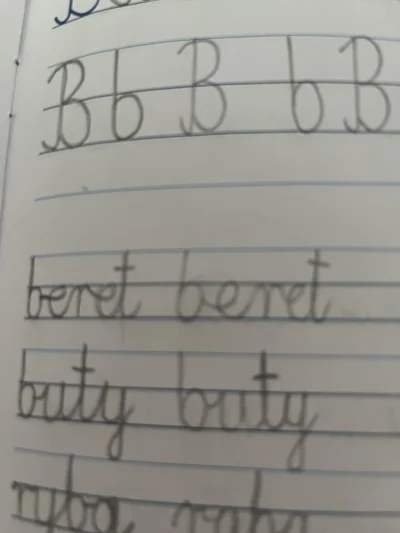 B b B b B
beret beret
buty buty
ryba ryba